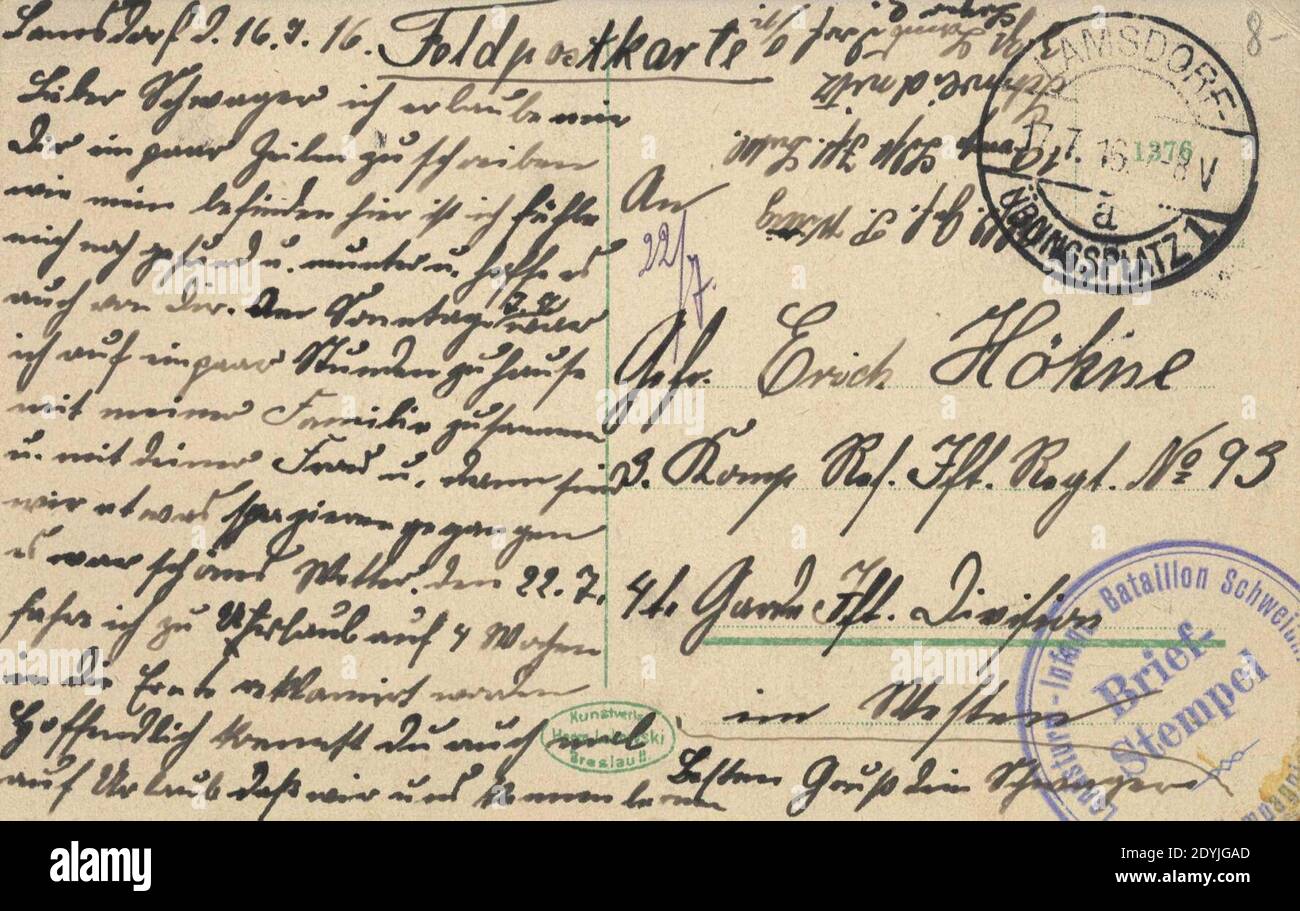 Lamsdorf d. 16.7.16.
Feldpostkarte
Lieber Schwager ich erlaube mir
Dir ein paar Zeilen zu schreiben
wie mein befinden hier ist ich fühle
mich noch gesund u. munter u. hoffe es
auch von Dir. Am Sonntag war
ich auf ein paar Stunden zu hause
mit meiner Familie zusammen
u. mit deiner Frau u. dann sind
wir etwas spazieren gegangen
es war schönes Wetter. den 22.7.
fahre ich zu Urlaub auf 4 Wochen
in die Ernte reklamirt worden
Hoffendlich kommst du auch mal
auf Urlaub daß wir uns kennen lernen
Besten Gruß dein Schwager
An
22/7.
Gefr. Erich Höhne
3. Komp Res. Ift. Regt. No 93
4te Garde Ift. Division
im Westen
Schweidnitz
LAMSDORF-
17.7.16. -8V
a
ÜBUNGSPLATZ 1
1376
8-
Kunstverlag
Breslau II.
Landsturm-Infant. Bataillon
Brief-
Stempel
alamy
Image ID: 2DYJGAD
www.alamy.com